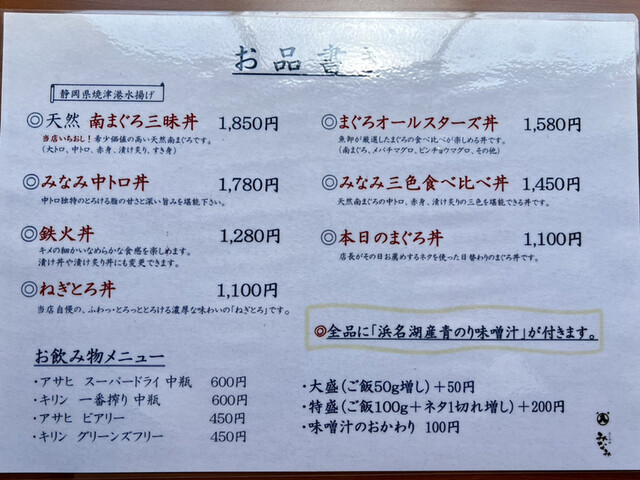 お品書き
静岡県焼津港水揚げ
◎天然 南まぐろ三昧丼 1,850円
当店いちおし!希少価値の高い天然南まぐろです。
(大トロ、中トロ、赤身、漬け炙り、すき身)
◎みなみ中トロ丼 1,780円
中トロ独特のとろける脂の甘さと深い旨みを堪能下さい。
◎鉄火丼 1,280円
キメの細かいなめらかな食感を楽しめます。
漬け丼や漬け炙り丼にも変更できます。
◎ねぎとろ丼 1,100円
当店自慢の、ふわっ・とろっととろける濃厚な味わいの「ねぎとろ」です。
◎まぐろオールスターズ丼 1,580円
魚卸が厳選したまぐろの食べ比べが楽しめる丼です。
(南まぐろ、メバチマグロ、ビンチョウマグロ、その他)
◎みなみ三色食べ比べ丼 1,450円
天然南まぐろの中トロ、赤身、漬け炙りの三色を堪能できる丼です。
◎本日のまぐろ丼 1,100円
店長がその日お薦めするネタを使った日替わりのまぐろ丼です。
◎全品に「浜名湖産青のり味噌汁」が付きます。
お飲み物メニュー
・アサヒ スーパードライ 中瓶 600円
・キリン 一番搾り 中瓶 600円
・アサヒ ビアリー 450円
・キリン グリーンズフリー 450円
・大盛(ご飯50g増し)+50円
・特盛(ご飯100g+ネタ1切れ増し)+200円
・味噌汁のおかわり 100円
みなみ